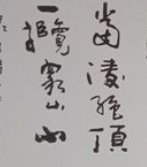 當凌絕頂
一覽眾山小